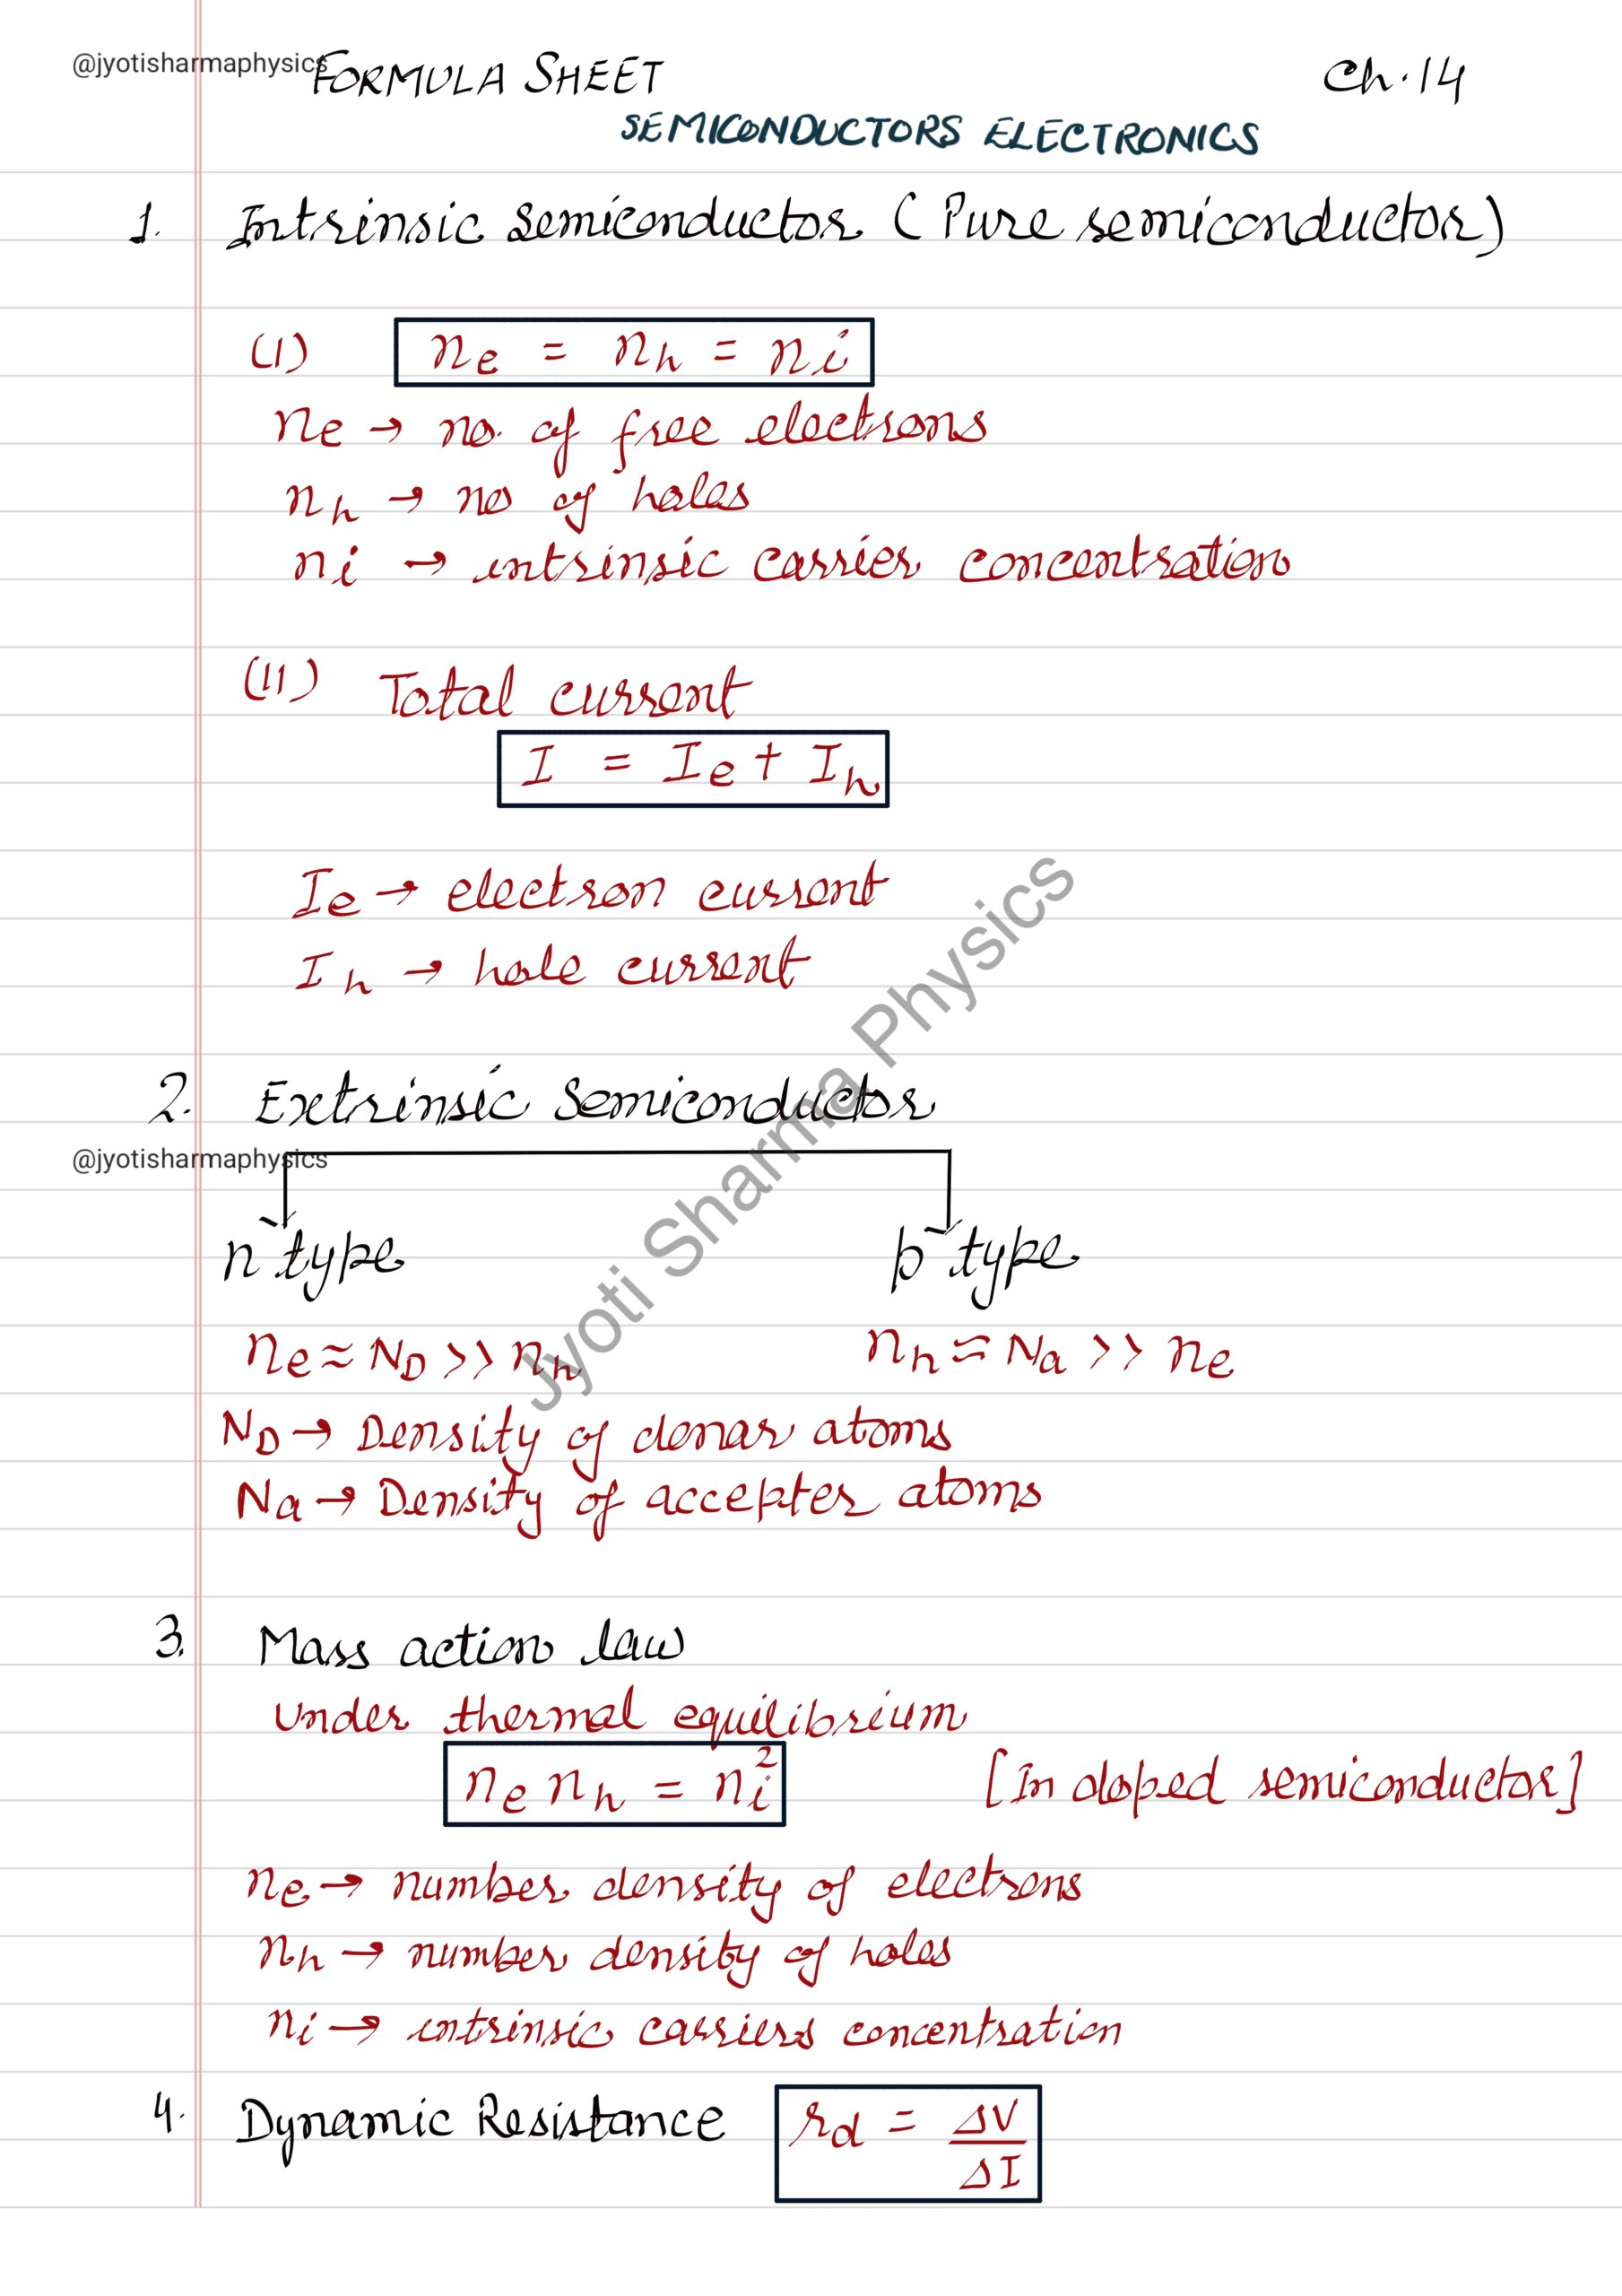 @jyotisharmaphysics FORMULA SHEET Ch.14
SEMICONDUCTORS ELECTRONICS
1. Intrinsic semiconductor (Pure semiconductor)
(I) ne = nh = ni
ne → no. of free electrons
nh → no of holes
ni → intrinsic carrier concentration
(II) Total current
I = Ie + Ih
Ie → electron current
Ih → hole current
Jyoti Sharma Physics
2. Extrinsic Semiconductor
@jyotisharmaphysics
n type p type
ne ≈ ND >> nh nh ≈ Na >> ne
ND → Density of donar atoms
Na → Density of accepter atoms
3. Mass action law
Under thermal equilibrium
ne nh = ni² [In doped semiconductor]
ne → number density of electrons
nh → number density of holes
ni → intrinsic carriers concentration
4. Dynamic Resistance rd = ΔV
ΔI